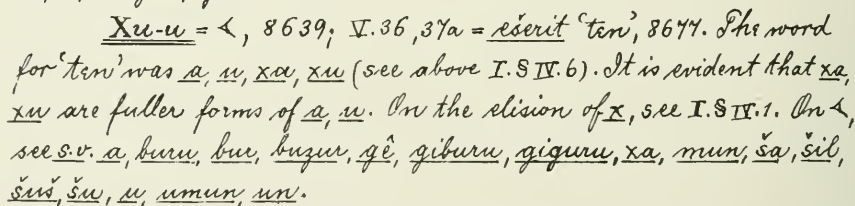 Xu-u = 𒌋, 8639; V. 36, 37a = ešerit 'ten', 8677. The word
for 'ten' was a, u, xa, xu (see above I. § IV. 6). It is evident that xa,
xu are fuller forms of a, u. On the elision of x, see I. § IV. 1. On 𒌋,
see s.v. a, buru, bur, buzur, gê, giburu, giguru, xa, mun, ša, šil,
šuš, šu, u, umun, un.